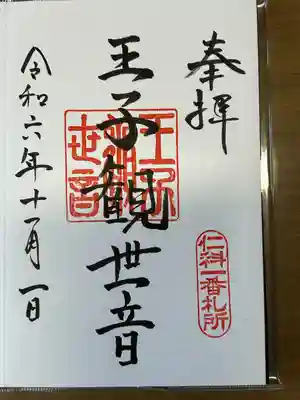 奉拝
仁科一番札所
王子観世音
王子観世音
令和六年十一月一日